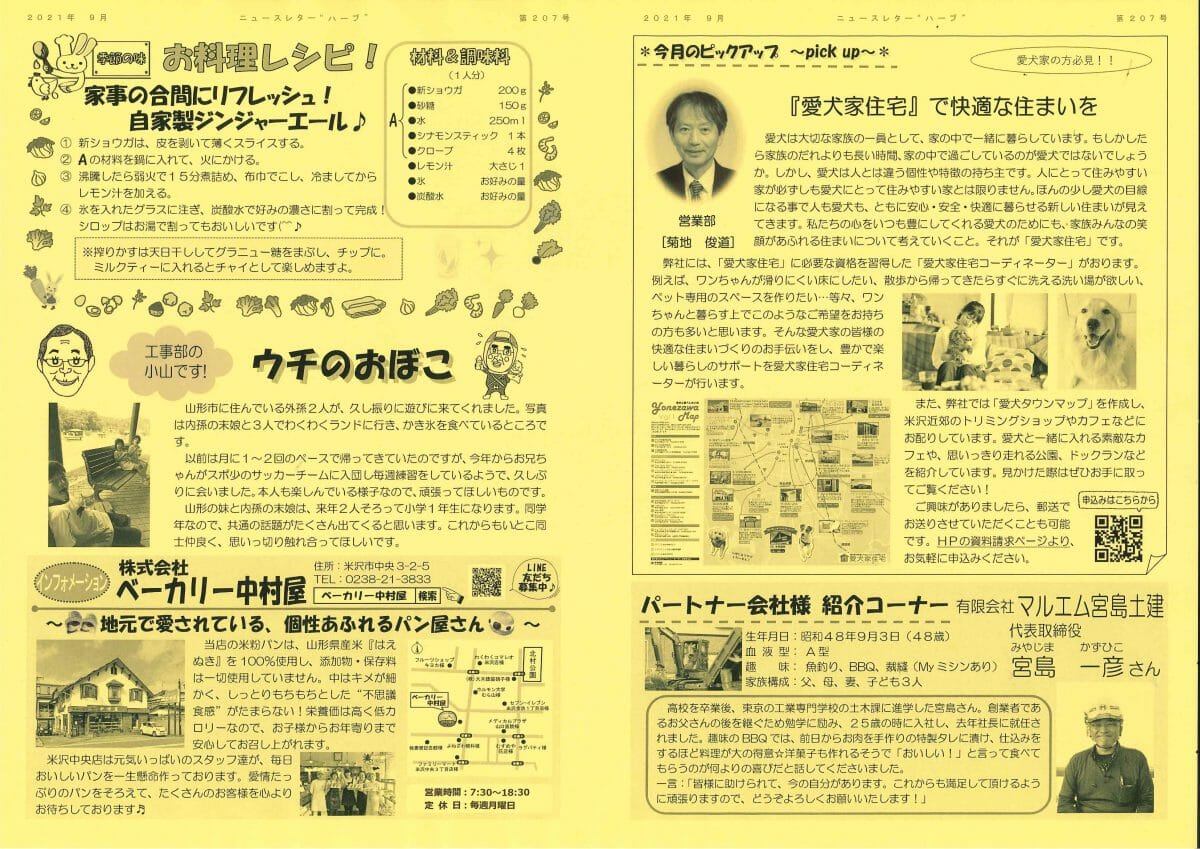 2021年 9月
ニュースレター"ハーブ"
第207号
季節の味
お料理レシピ！
家事の合間にリフレッシュ！
自家製ジンジャーエール♪
① 新ショウガは、皮を剥いて薄くスライスする。
② Aの材料を鍋に入れて、火にかける。
③ 沸騰したら弱火で15分煮詰め、布巾でこし、冷ましてから
レモン汁を加える。
④ 氷を入れたグラスに注ぎ、炭酸水で好みの濃さに割って完成！
シロップはお湯で割ってもおいしいです(^^♪
※搾りかすは天日干ししてグラニュー糖をまぶし、チップに。
ミルクティーに入れるとチャイとして楽しめますよ。
材料＆調味料
（1人分）
A
●新ショウガ 200g
●砂糖 150g
●水 250ml
●シナモンスティック 1本
●クローブ 4枚
●レモン汁 大さじ1
●氷 お好みの量
●炭酸水 お好みの量
工事部の
小山です!
ウチのおぼこ
山形市に住んでいる外孫2人が、久し振りに遊びに来てくれました。写真
は内孫の末娘と3人でわくわくランドに行き、かき氷を食べているところで
す。
以前は月に1～2回のペースで帰ってきていたのですが、今年からお兄ち
ゃんがスポ少のサッカーチームに入団し毎週練習をしているようで、久しぶ
りに会いました。本人も楽しんでいる様子なので、頑張ってほしいものです。
山形の妹と内孫の末娘は、来年2人そろって小学1年生になります。同学
年なので、共通の話題がたくさん出てくると思います。これからもいとこ同
士仲良く、思いっ切り触れ合ってほしいです。
インフォメーション
株式会社
ベーカリー中村屋
住所：米沢市中央3-2-5
TEL：0238-21-3833
ベーカリー中村屋 検索
LINE
友だち
募集中♪
～地元で愛されている、個性あふれるパン屋さん～
当店の米粉パンは、山形県産米『はえ
ぬき』を100％使用し、添加物・保存料
は一切使用していません。中はキメが細
かく、しっとりもちもちとした"不思議
食感"がたまらない！栄養価は高く低カ
ロリーなので、お子様からお年寄りまで
安心してお召し上がれます。
米沢中央店は元気いっぱいのスタッフ達が、毎日
おいしいパンを一生懸命作っております。愛情たっ
ぷりのパンをそろえて、たくさんのお客様を心より
お待ちしております♬
北村公園
ベーカリー
中村屋
営業時間：7:30～18:30
定休日：毎週月曜日
2021年 9月
ニュースレター"ハーブ"
第207号
＊今月のピックアップ ～pick up～＊
愛犬家の方必見！！
『愛犬家住宅』で快適な住まいを
営業部
［菊地 俊道］
愛犬は大切な家族の一員として、家の中で一緒に暮らしています。もしかした
ら家族のだれよりも長い時間、家の中で過ごしているのが愛犬ではないでしょう
か。しかし、愛犬は人とは違う個性や特徴の持ち主です。人にとって住みやすい
家が必ずしも愛犬にとって住みやすい家とは限りません。ほんの少し愛犬の目線
になる事で人も愛犬も、ともに安心・安全・快適に暮らせる新しい住まいが見え
てきます。私たちの心をいつも豊にしてくれる愛犬のためにも、家族みんなの笑
顔があふれる住まいについて考えていくこと。それが「愛犬家住宅」です。
弊社には、「愛犬家住宅」に必要な資格を習得した「愛犬家住宅コーディネーター」がおります。
例えば、ワンちゃんが滑りにくい床にしたい、散歩から帰ってきたらすぐに洗える洗い場が欲しい、
ペット専用のスペースを作りたい…等々、ワン
ちゃんと暮らす上でこのようなご希望をお持ち
の方も多いと思います。そんな愛犬家の皆様の
快適な住まいづくりのお手伝いをし、豊かで楽
しい暮らしのサポートを愛犬家住宅コーディネ
ーターが行います。
Yonezawa
Map
愛犬家住宅
また、弊社では「愛犬タウンマップ」を作成し、
米沢近郊のトリミングショップやカフェなどに
お配りしています。愛犬と一緒に入れる素敵なカ
フェや、思いっきり走れる公園、ドックランなど
を紹介しています。見かけた際はぜひお手に取っ
てご覧ください！
ご興味がありましたら、郵送で
お送りさせていただくことも可能
です。HPの資料請求ページより、
お気軽に申込みください。
申込みはこちらから
パートナー会社様 紹介コーナー
有限会社 マルエム宮島土建
代表取締役
みやじま かずひこ
宮島 一彦さん
生年月日：昭和48年9月3日（48歳）
血液型：A型
趣味：魚釣り、BBQ、裁縫（Myミシンあり）
家族構成：父、母、妻、子ども3人
高校を卒業後、東京の工業専門学校の土木課に進学した宮島さん。創業者であ
るお父さんの後を継ぐため勉学に励み、25歳の時に入社し、去年社長に就任さ
れました。趣味のBBQでは、前日からお肉を手作りの特製タレに漬け、仕込みを
するほど料理が大の得意☆洋菓子も作れるそうで「おいしい！」と言って食べて
もらうのが何よりの喜びだと話してくださいました。
一言：「皆様に助けられて、今の自分があります。これからも満足して頂けるよう
に頑張りますので、どうぞよろしくお願いいたします！」